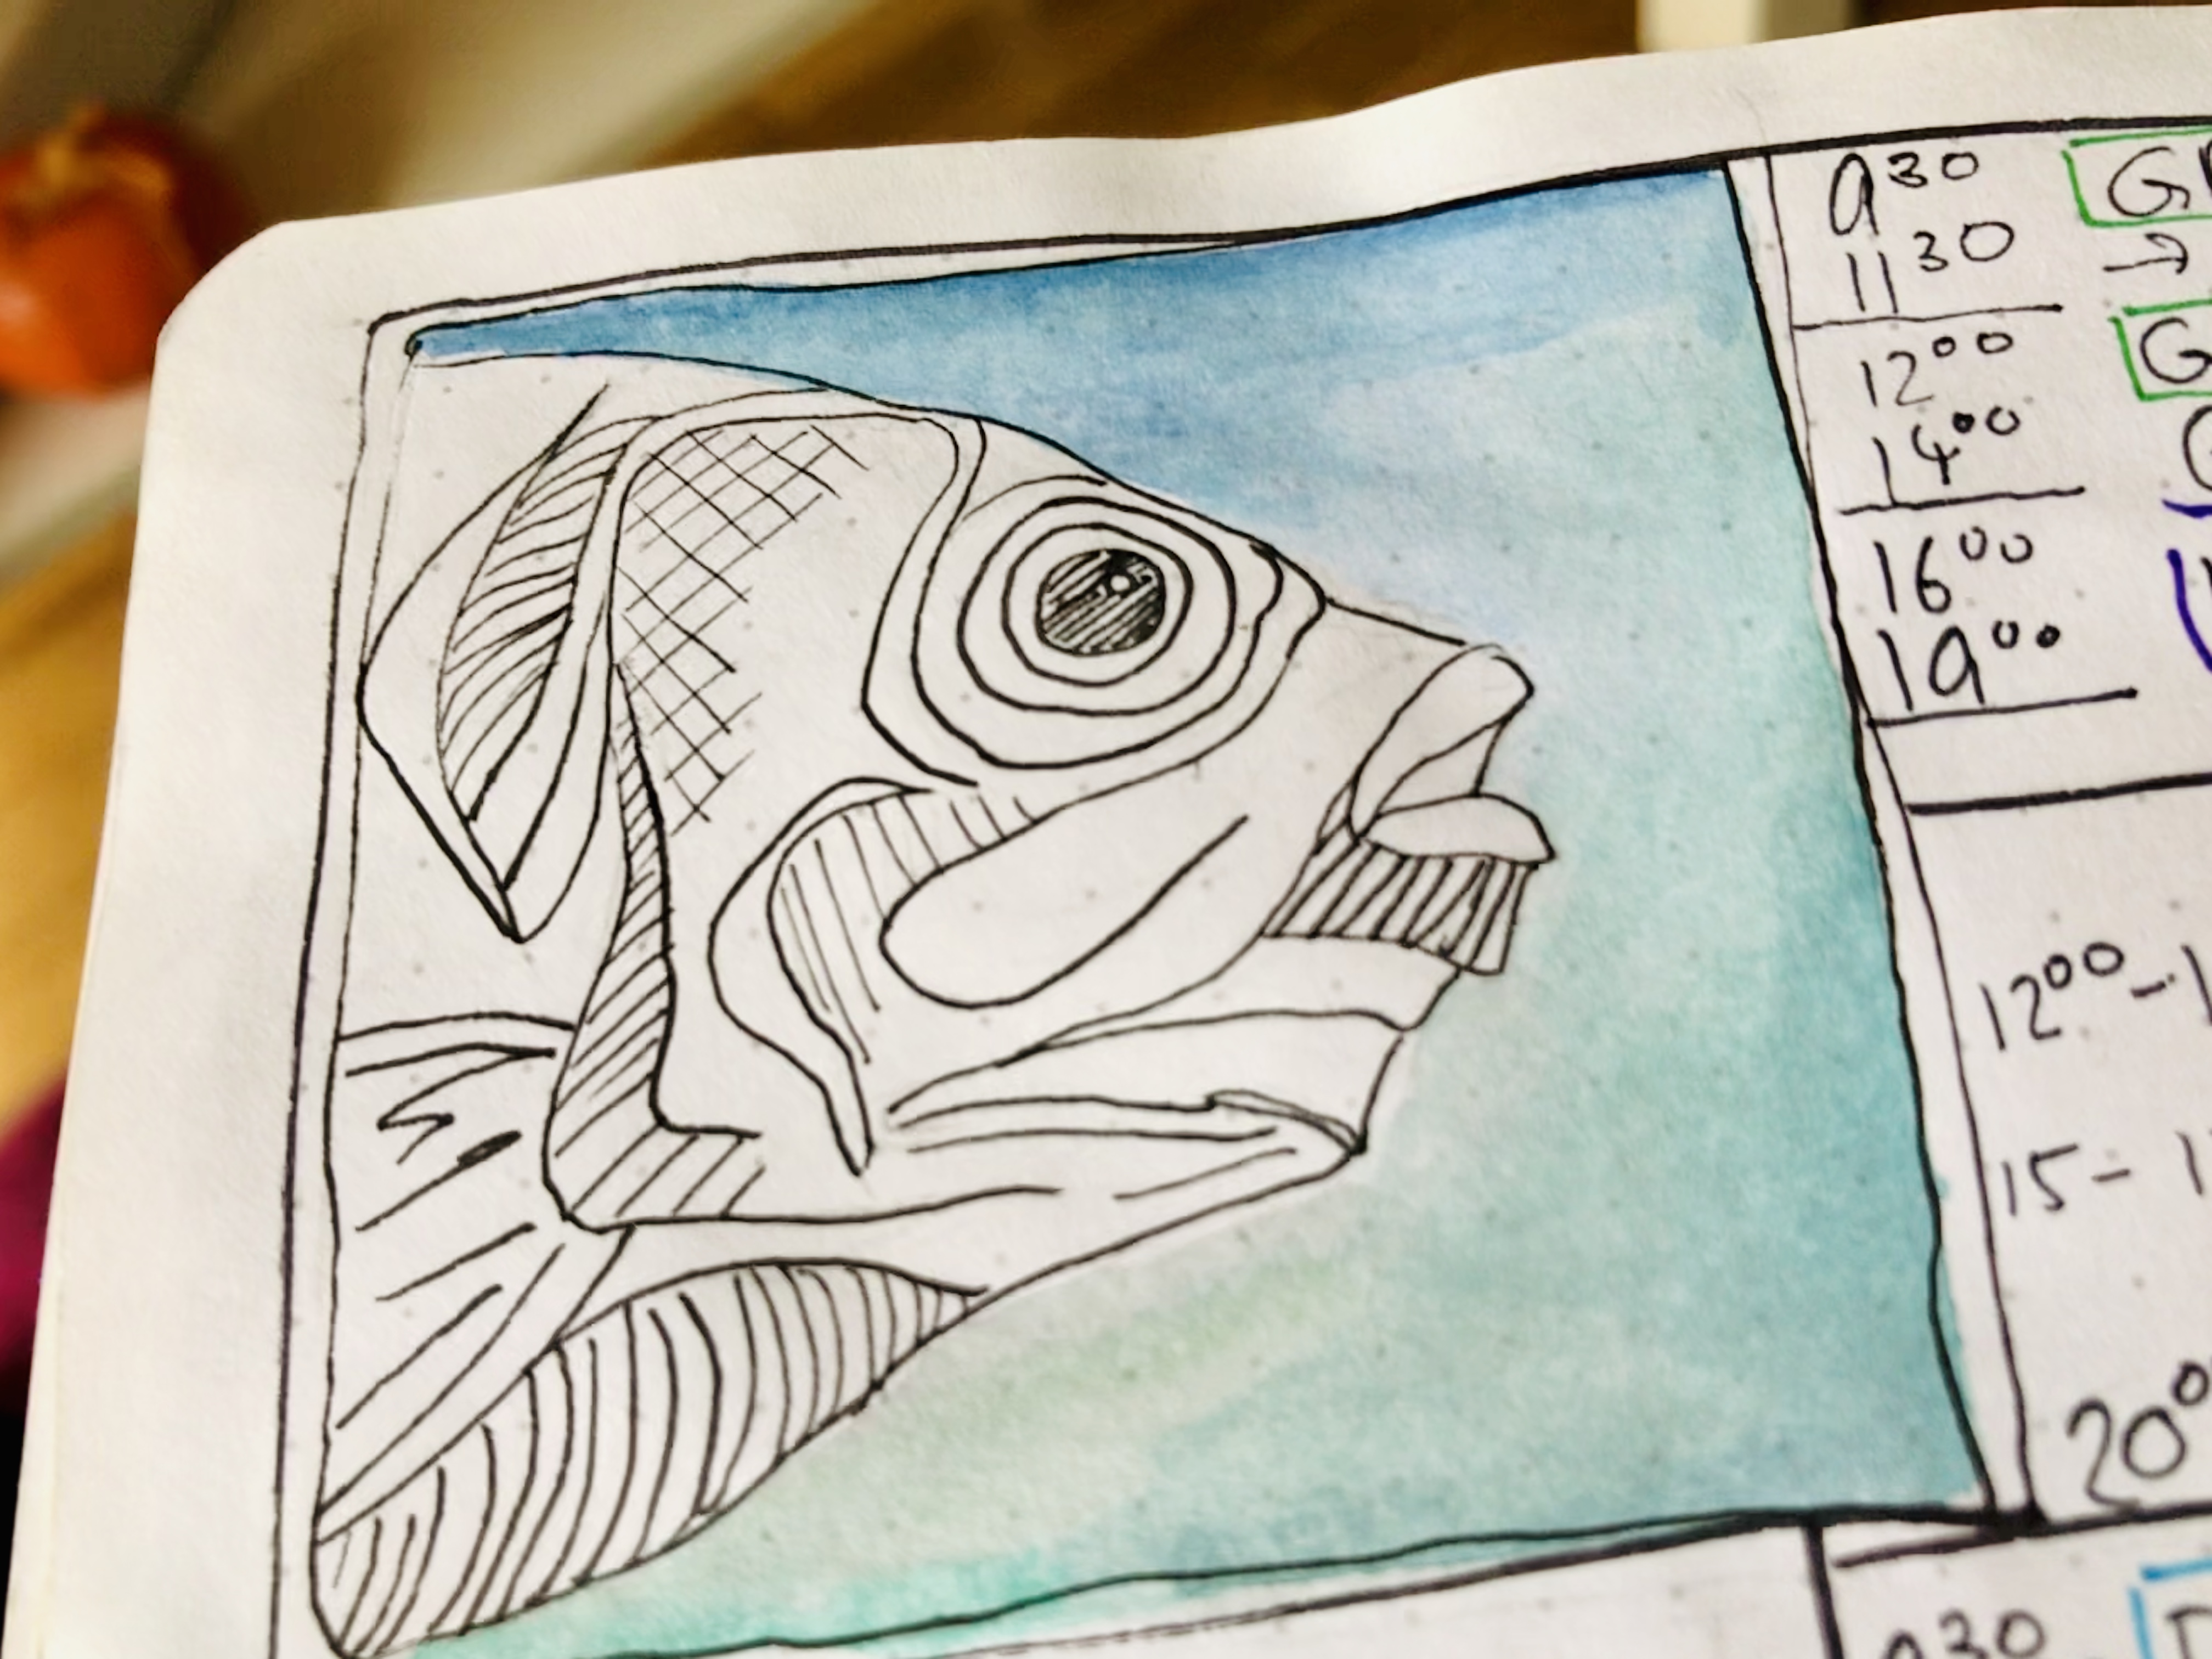 9³⁰
11³⁰
12⁰⁰
14⁰⁰
16⁰⁰
19⁰⁰
12⁰⁰-1
15-1
20⁰
9³⁰